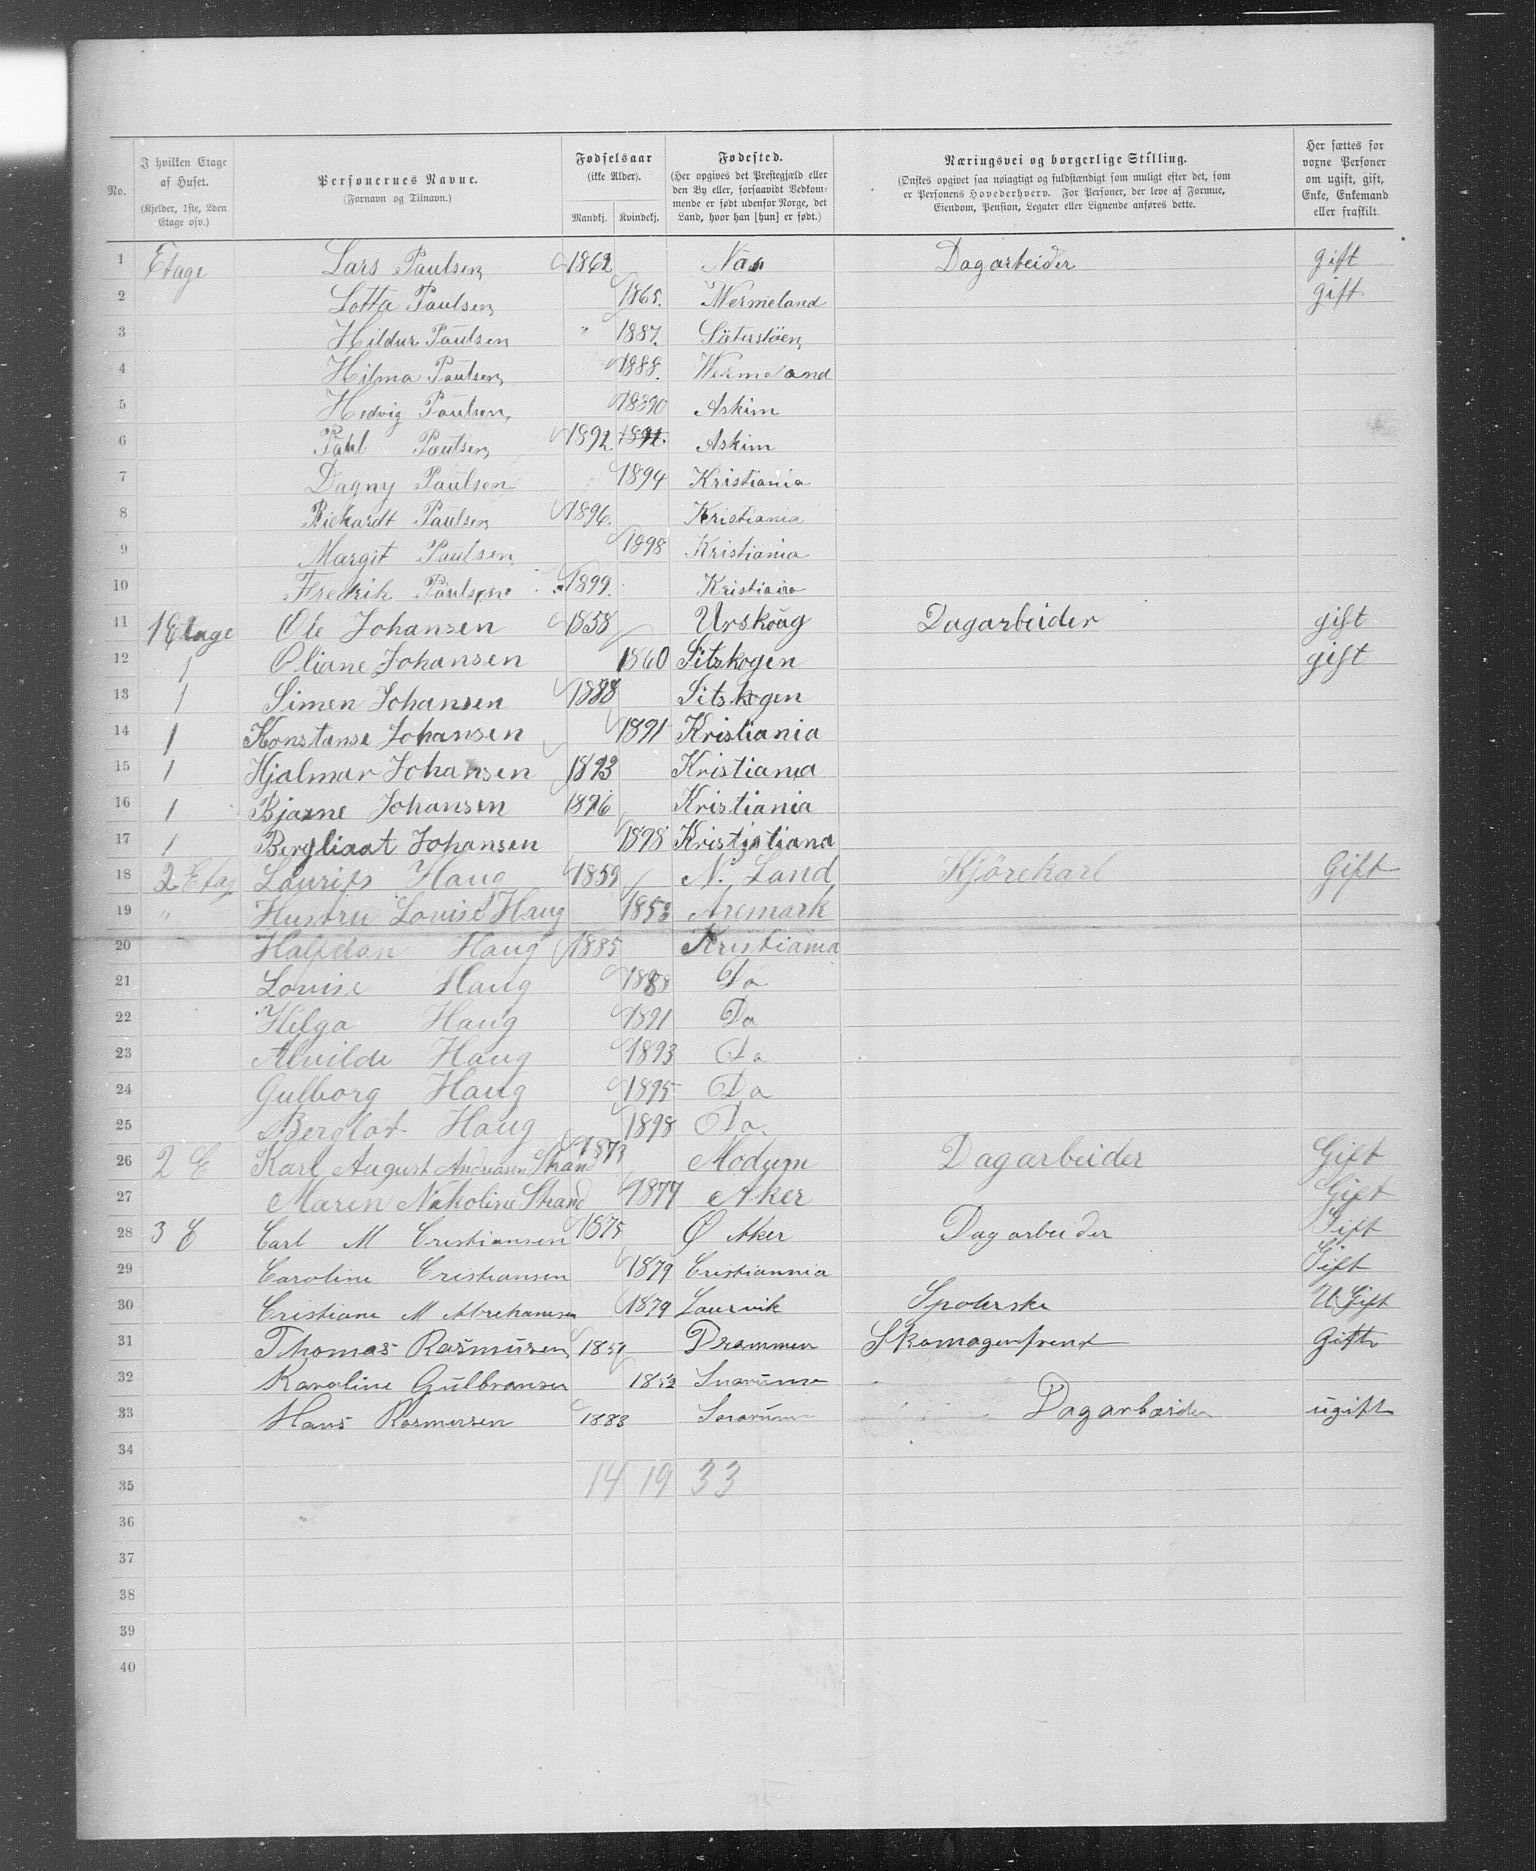 No. I hvilken Etage af Huset. (Kjelder, 1ste, 2den Etage osv.) Personernes Navne. (Fornavn og Tilnavn.) Fødselsaar (ikke Alder). Mandkj. Kvindekj. Fødested. (Her opgives det Prestegjæld eller den By eller, forsaavidt Vedkommende er født udenfor Norge, det Land, hvor han [hun] er født.) Næringsvei og borgerlige Stilling. (Ønskes opgivet saa nøiagtigt og fuldstændigt som muligt efter det, som er Personens Hovederhverv. For Personer, der leve af Formue, Eiendom, Pension, Legater eller Lignende anføres dette. Her sættes for voxne Personer om ugift, gift, Enke, Enkemand eller fraskilt.
1 Etage Lars Paulsen 1862 Næs Dagarbeider gift
2 Lotta Paulsen 1865. Wermeland gift
3 Hildur Paulsen " 1887. Säterstöen
4 Hilma Paulsen 1888. Wermeland
5 Hedvig Paulsen, 18890 Askim
6 Paul Paulsen 1892 Askim
7 Dagny Paulsen 1894 Kristiania
8 Rickardt Paulsen 1896. Kristiania
9 Margit Paulsen 1898 Kristiania
10 Fredrik Paulsen 1899. Kristiania
11 1 Etage Ole Johansen 1858 Urskoug Dagarbeider gift
12 1 Oliane Johansen 1860 Sitskogen gift
13 1 Simen Johansen 1888 Sitskogen
14 1 Konstanse Johansen 1891 Kristiania
15 1 Hjalmar Johansen 1893 Kristiania
16 1 Bjarne Johansen 1896 Kristiania
17 1 Bergliaat Johansen 1898 Kristiatiana
18 2 Etag Laurits Haug 1859 N. Land Kjörekarl Gift
19 " Hustru Louise Haug 1853 Aremark
20 " Halfdan Haug 1885 Kristiania
21 Louise Haug 1888 Do
22 Helga Haug 1891 Do
23 Alvilde Haug 1893 Do
24 Gulborg Haug 1895 Do
25 Berglot Haug 1898 Do.
26 2 E Karl August Andreasen Strand 1873 Modum Dagarbeider Gift
27 Maren Nikoline Strand 1877 Aker Gift
28 3 E Carl M Cristiansen 1875 Ø Aker Dagarbeider Gift
29 Caroline Cristiansen 1879 Cristiannia Gift
30 Cristiane M Abrehamsen 1879 Laurvik Spolerske U Gift
31 Thomas Rasmusen 1851 Drammen Skomagersvend Gift
32 Karoline Gulbransen 1852 Snarum
33 Hans Rasmusen 1883 Dagarbeider ugift
34
35 14 19 33
36
37
38
39
40